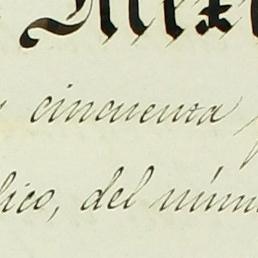 Méx
cincuenta
lico, del núm